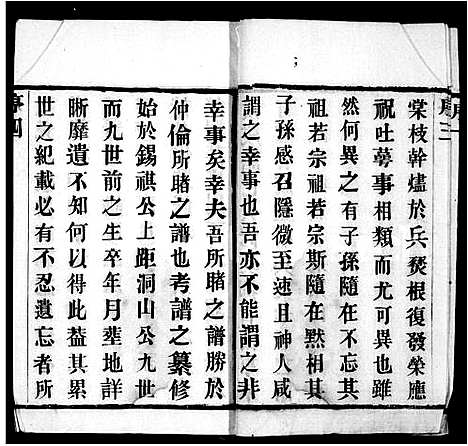 序三
棠枝幹燼於兵燹根復發榮應
祝吐蕚事相類而可異也雖
然何異之有子孫隨在默相其
祖若宗祖若宗斯隨在默相其
子孫感召隱微至速且神人咸
謂之幸事也吾亦不能謂之非
幸事矣幸夫吾所賭之譜勝於
仲倫所賭之譜也考譜之纂修
始於錫祺公上距洞山公九世
而九世前之生卒年月塋地詳
晰靡遺不知何以得此葢其累
世之紀載必有不忍遺忘者所
序四